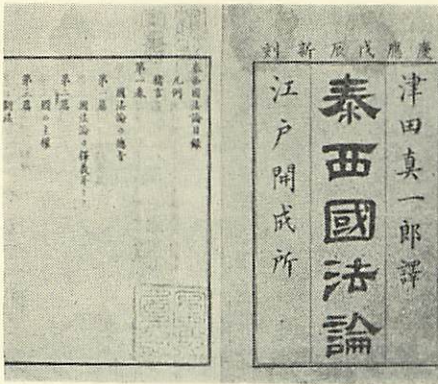 慶應戊辰新刻
津田真一郎譯
泰西國法論
江戸開成所
泰西國法論目録
凡例
緒言
第一卷
國法論の總旨
第一篇
國法論の釋義
國の主權